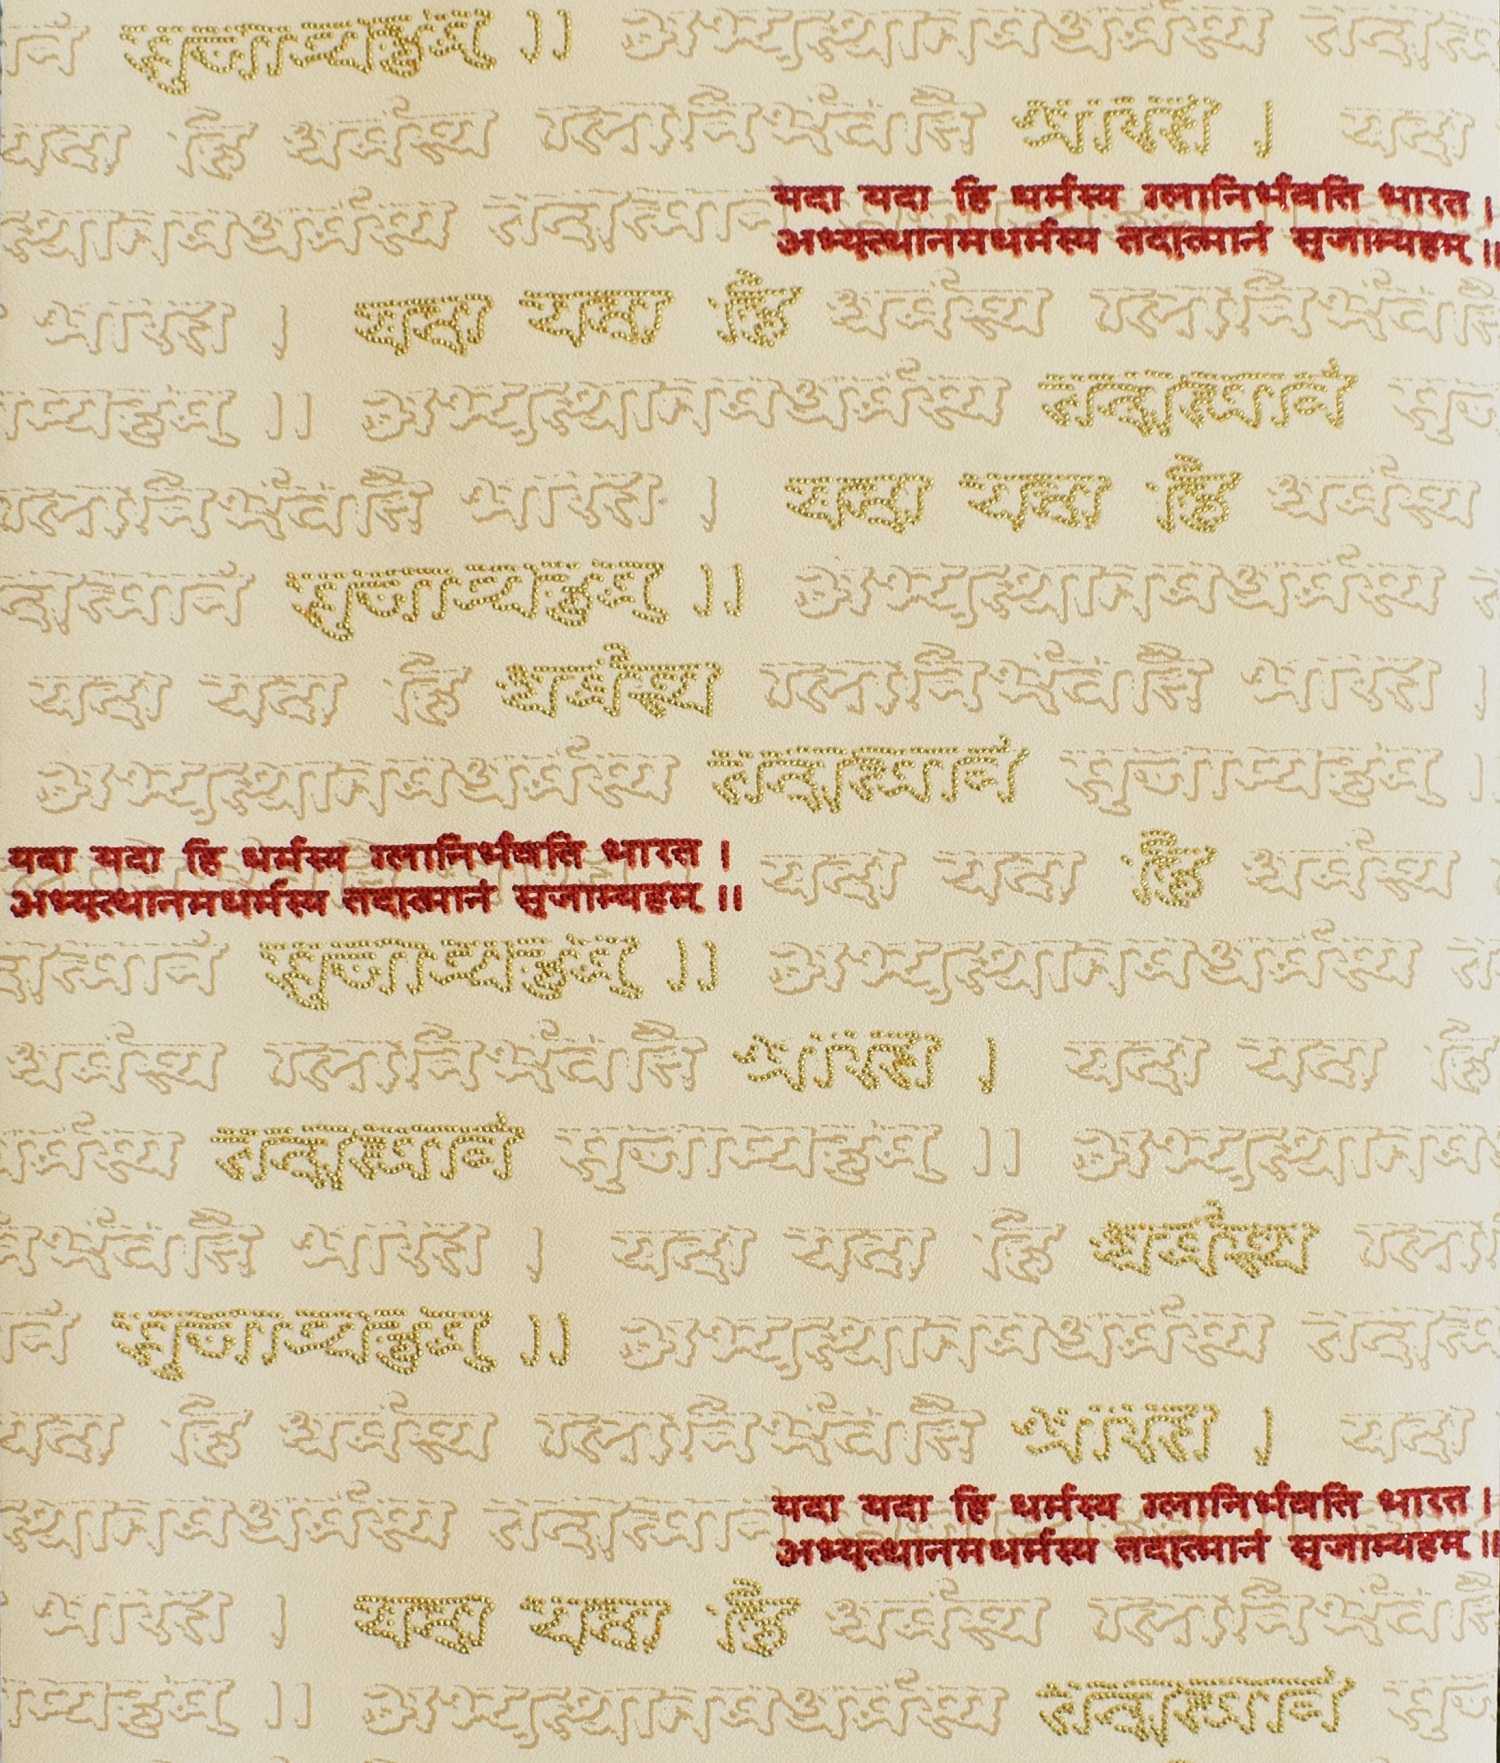 सृजाम्यहम् ।। अभ्यत्थानमधर्मस्य
यदा हि धर्मस्य ग्लानिर्भवति भारत । यदा
यदा यदा हि धर्मस्य ग्लानिर्भवति भारत ।
अभ्यत्थानमधर्मस्य तदात्मानं सृजाम्यहम् ।।
भारत । यदा यदा हि धर्मस्य
।। अभ्यत्थानमधर्मस्य तदात्मानं
ग्लानिर्भवति भारत । यदा यदा हि धर्मस्य
सृजाम्यहम् ।। अभ्यत्थानमधर्मस्य
यदा यदा हि धर्मस्य ग्लानिर्भवति भारत ।
अभ्यत्थानमधर्मस्य तदात्मानं सृजाम्यहम् ।
यदा यदा हि धर्मस्य ग्लानिर्भवति भारत ।
अभ्यत्थानमधर्मस्य तदात्मानं सृजाम्यहम् ।।
यदा यदा हि धर्मस्य
सृजाम्यहम् ।। अभ्यत्थानमधर्मस्य
धर्मस्य ग्लानिर्भवति भारत । यदा यदा हि
तदात्मानं सृजाम्यहम् ।।
भारत । यदा यदा हि धर्मस्य
सृजाम्यहम् ।। अभ्यत्थानमधर्मस्य
यदा हि धर्मस्य ग्लानिर्भवति भारत । यदा
यदा यदा हि धर्मस्य ग्लानिर्भवति भारत ।
अभ्यत्थानमधर्मस्य तदात्मानं सृजाम्यहम् ।।
भारत । यदा यदा हि धर्मस्य
।। अभ्यत्थानमधर्मस्य तदात्मानं